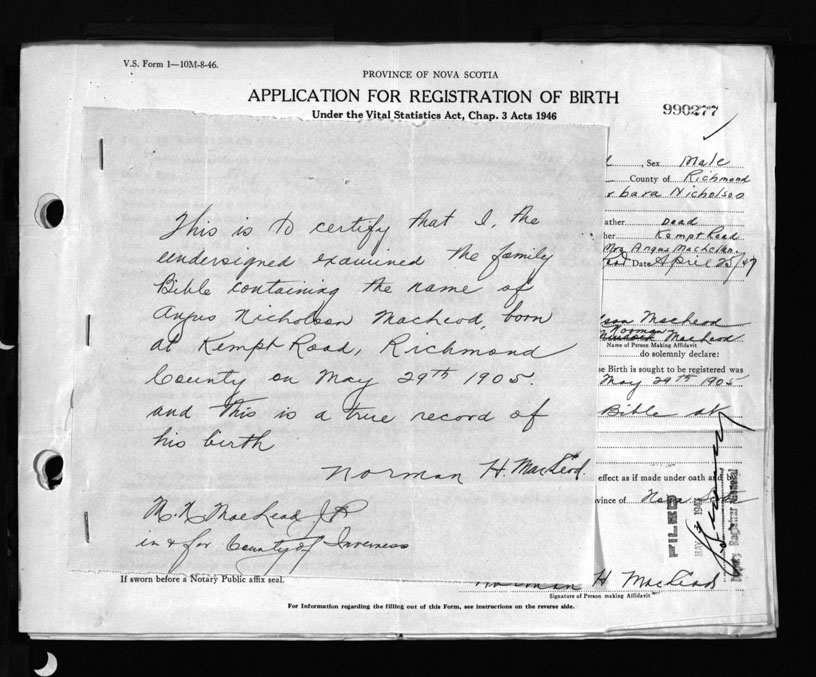 V.S. Form 1—10M-8-46.
PROVINCE OF NOVA SCOTIA
APPLICATION FOR REGISTRATION OF BIRTH
Under the Vital Statistics Act, Chap. 3 Acts 1946
990277
, Sex Male
County of Richmond
rbara Nicholson
ather Dead
her Kempt Road
Mrs Angus
Date April 25/47
This is to certify that I, the
undersigned examined the family
Bible containing the name of
Angus Nicholson MacLeod, born
at Kempt Road, Richmond
County on May 29th 1905.
and this is a true record of
his birth
Norman H. MacLeod.
MacLeod J P
in & for County of Inverness
lson MacLeod
Norman
MacLeod
Name of Person Making Affidavit
do solemnly declare:
se Birth is sought to be registered was
May 29th 1905
Bible
effect as if made under oath and by
vince of Nova
FILED
MAY 1947
Deputy Registrar General
If sworn before a Notary Public affix seal.
Norman H MacLeod
Signature of Person making Affidavit
For Information regarding the filling out of this Form, see instructions on the reverse side.